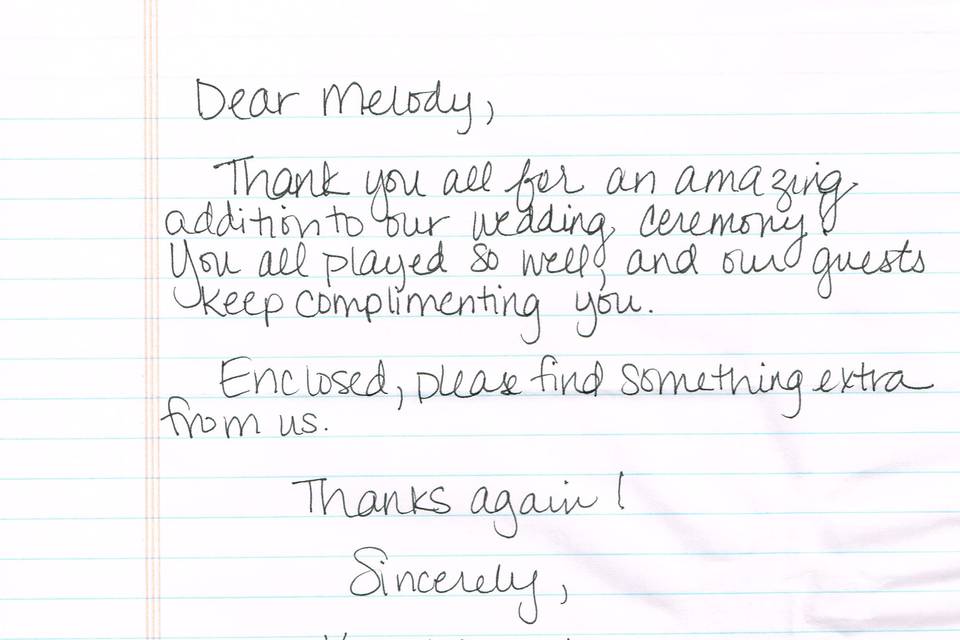 Dear Melody,
Thank you all for an amazing
addition to our wedding ceremony!
You all played so well, and our guests
keep complimenting you.
Enclosed, please find something extra
from us.
Thanks again!
Sincerely,